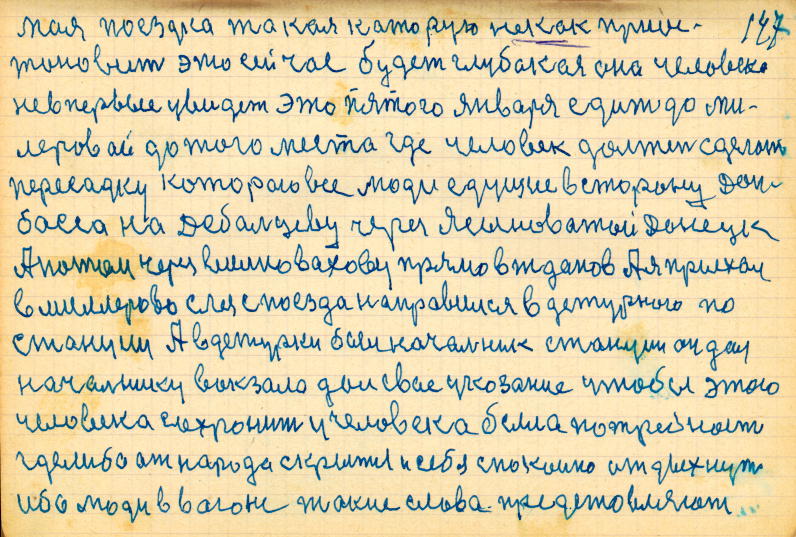 мая поездка такая каторую некак приос- 147
тоновит это сичас будет глубакая она человека
невпервые увидет это пятого января едит до ми-
леровай дотого места где человек должен сделат
пересадку котораювсе люди едущие в сторону Дон-
басса на Дебальцеву через Ясиноватой Донецк
А потом через вилновахову прямо в жданов А я приехал
в миллерово слез с поезда направился в дежурного по
станции А в дежурки был началник станции он дал
началнику вокзала дал свое указание чтобы этого
человека сохронит у человека была потребност
где либо от народа скрытся и себя спокойно отдыхнут
ибо люди в вагоне такие слова предстовляют